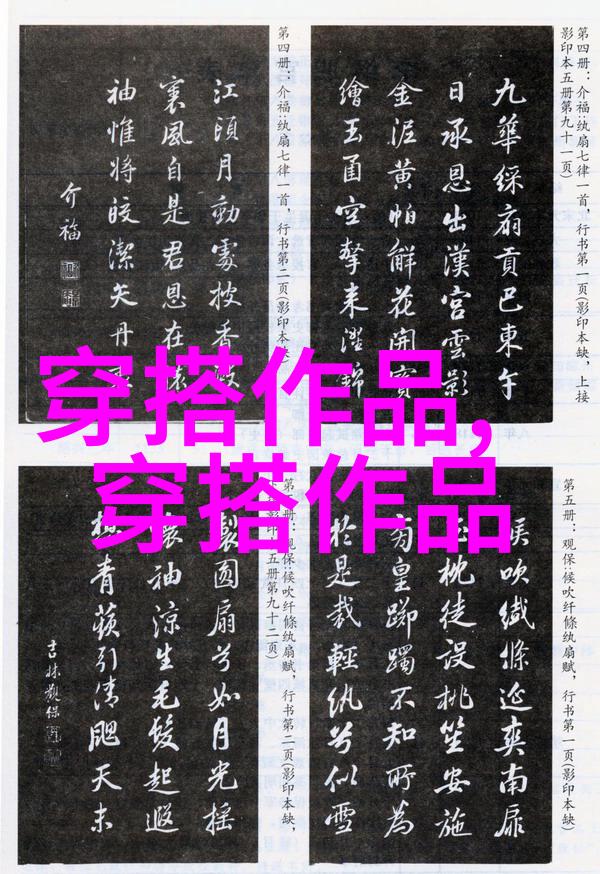 第四册：介福：纨扇七律一首，行书第一页（影印本缺，上接
影印本五册第九十一页）
九華綵扇貢巴東午
日承恩出漢宮雲影
金泥黄帕鮮花開寶
繪玉函空擎来溼錦
第四册：介福：纨扇七律一首，行书第二页（影印本缺）
江頭月動處披香殿
裏風自是君恩在懷
袖惟将皎潔矢丹
介福
穿搭作品，
穿搭作品
第五册：观保：候吹纤絛纨扇赋，行书第一页（影印本缺）
候吹纖絛延爽南扉
枕徒设桃笙安施
皇踯躅不知所為
於是裁輕纨兮似雪
第五册：观保：候吹纤絛纨扇赋，行书第二页（影印本缺，
影印本五册第九十二页）
製圆扇兮如月光摇
袖凉生毛髮起遐
青蘋引清飔天末
吉林觀保